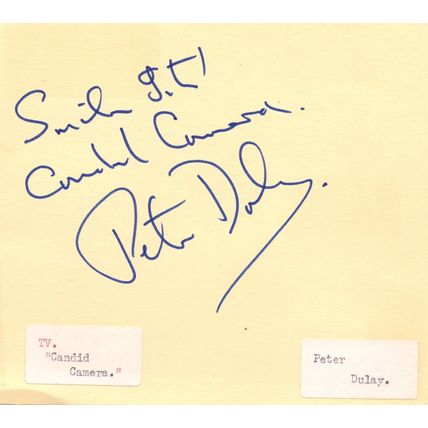 Smile It's
Candid Camera.
Peter Dulay.
TV.
"Candid
Camera."
Peter
Dulay.